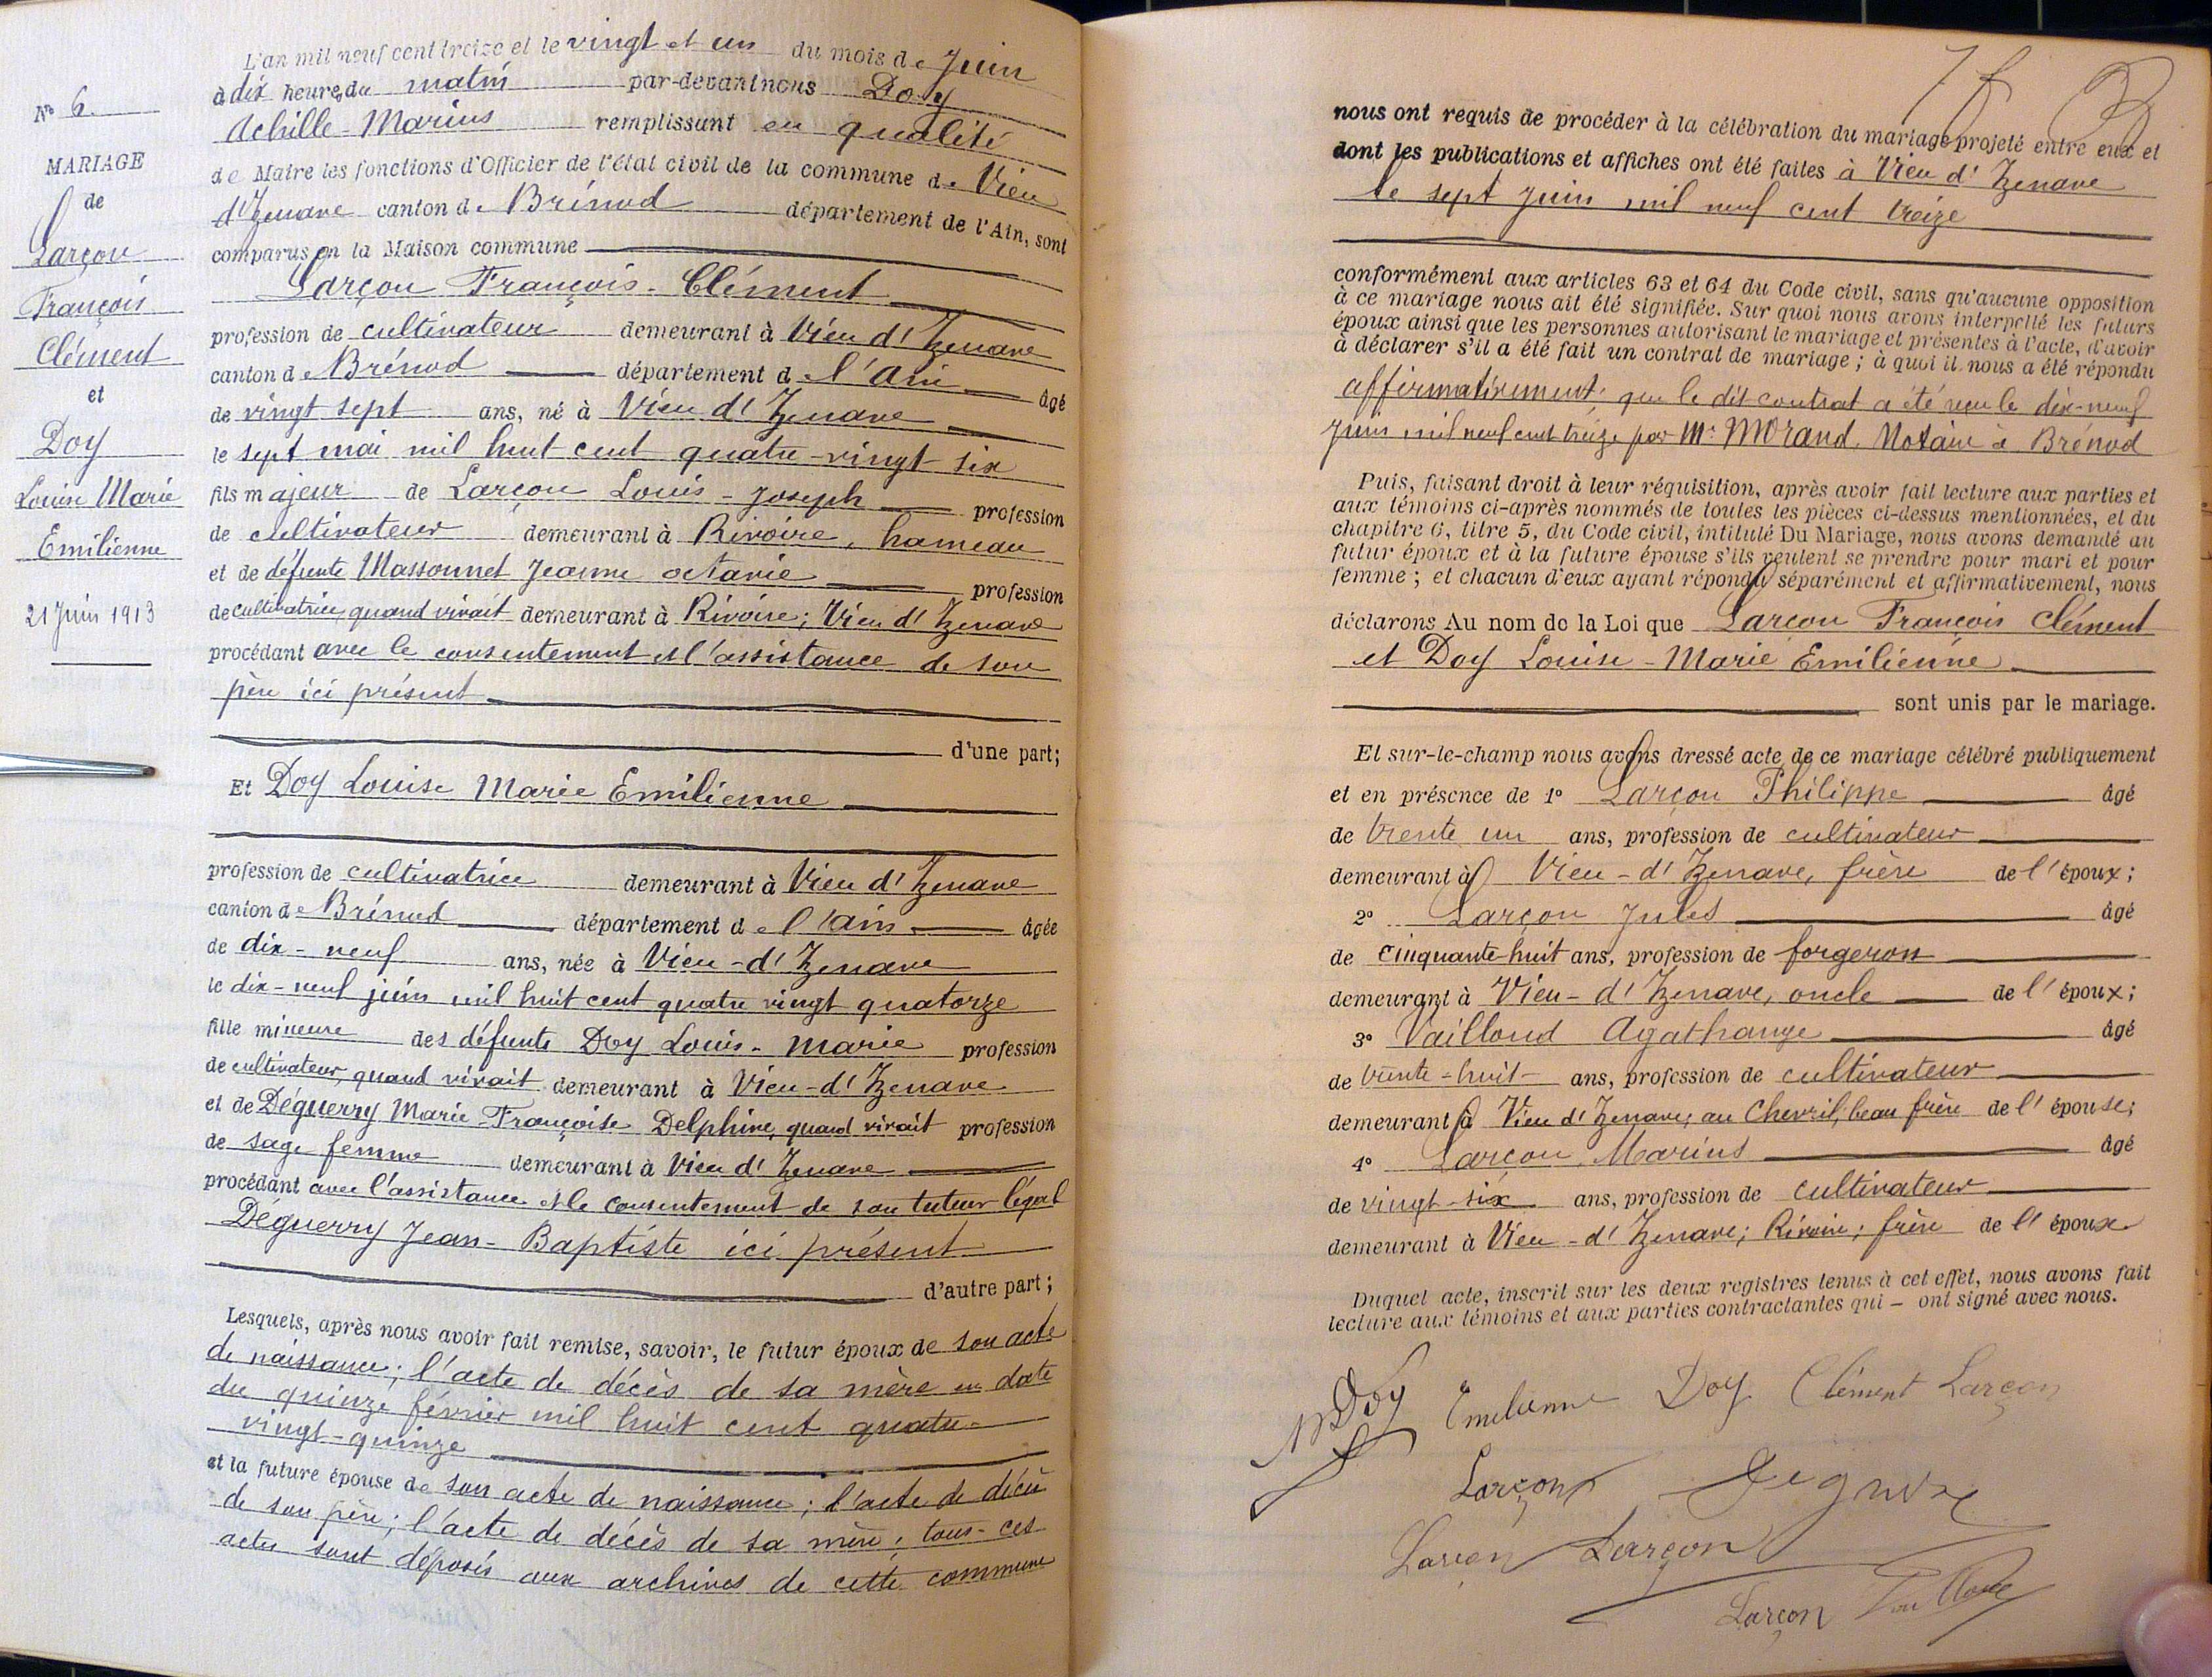 N° 6
MARIAGE
de
Larçon
François
Clément
et
Doy
Louise Marie
Emilienne
21 Juin 1913
L'an mil neuf cent treize et le vingt et un du mois de Juin
à dix heures du matin par-devant nous Doy
Achille-Marius remplissant en qualité
de Maire les fonctions d'Officier de l'état civil de la commune de Vieu
d'Izenave canton de Brénod département de l'Ain, sont
comparus en la Maison commune
Larçon François-Clément
profession de cultivateur demeurant à Vieu d'Izenave
canton de Brénod département de l'Ain âgé
de vingt sept ans, né à Vieu d'Izenave
le sept mai mil huit cent quatre-vingt six
fils majeur de Larçon Louis-Joseph profession
de cultivateur demeurant à Rivoire, hameau
et de défunte Massonnet Jeanne octavie profession
de cultivatrice, quand vivait demeurant à Rivoire; Vieu d'Izenave
procédant avec le consentement et l'assistance de son
père ici présent
d'une part;
Et Doy Louise Marie Emilienne
profession de cultivatrice demeurant à Vieu d'Izenave
canton de Brénod département de l'Ain âgée
de dix-neuf ans, née à Vieu-d'Izenave
le dix-neuf juin mil huit cent quatre vingt quatorze
fille mineure des défunts Doy Louis-Marie profession
de cultivateur, quand vivait demeurant à Vieu-d'Izenave
et de Déguerry Marie-Françoise Delphine, quand vivait profession
de sage femme demeurant à Vieu d'Izenave
procédant avec l'assistance et le consentement de son tuteur légal
Déguerry Jean-Baptiste ici présent
d'autre part;
Lesquels, après nous avoir fait remise, savoir, le futur époux de son acte
de naissance; l'acte de décès de sa mère en date
du quinze février mil huit cent quatre-
vingt-quinze
et la future épouse de son acte de naissance; l'acte de décès
de son père; l'acte de décès de sa mère; tous-ces
actes sont déposés aux archives de cette commune
nous ont requis de procéder à la célébration du mariage projeté entre eux et
dont les publications et affiches ont été faites à Vieu d'Izenave
le sept juin mil neuf cent treize
conformément aux articles 63 et 64 du Code civil, sans qu'aucune opposition
à ce mariage nous ait été signifiée. Sur quoi nous avons interpellé les futurs
époux ainsi que les personnes autorisant le mariage et présentes à l'acte, d'avoir
à déclarer s'il a été fait un contrat de mariage; à quoi il nous a été répondu
affirmativement; que le dit contrat a été reçu le dix-neuf
Juin mil neuf cent treize par Me Morand, Notaire à Brénod
Puis, faisant droit à leur réquisition, après avoir fait lecture aux parties et
aux témoins ci-après nommés de toutes les pièces ci-dessus mentionnées, et du
chapitre 6, titre 5, du Code civil, intitulé Du Mariage, nous avons demandé au
futur époux et à la future épouse s'ils veulent se prendre pour mari et pour
femme; et chacun d'eux ayant répondu séparément et affirmativement, nous
déclarons Au nom de la Loi que Larçon François Clément
et Doy Louise-Marie Emilienne
sont unis par le mariage.
Et sur-le-champ nous avons dressé acte de ce mariage célébré publiquement
et en présence de 1° Larçon Philippe âgé
de trente un ans, profession de cultivateur
demeurant à Vieu-d'Izenave, frère de l'époux;
2° Larçon Jules âgé
de cinquante-huit ans, profession de forgeron
demeurant à Vieu-d'Izenave, oncle de l'époux;
3° Vailloud Agathange âgé
de trente-huit ans, profession de cultivateur
demeurant à Vieu d'Izenave; au Chevril, beau frère de l'épouse;
4° Larçon Marius âgé
de vingt-six ans, profession de cultivateur
demeurant à Vieu-d'Izenave; Rivoire; frère de l'époux
Duquel acte, inscrit sur les deux registres tenus à cet effet, nous avons fait
lecture aux témoins et aux parties contractantes qui - ont signé avec nous.
Doy Emilienne Doy Clément Larçon
Larçon
Larçon Larçon
Larçon